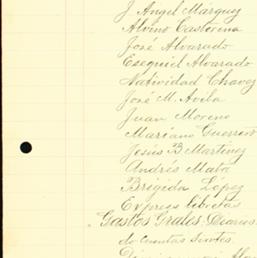 J. Angel Márquez
Albino Castorena
José Alvarado
Esequiel Alvarado
Natividad Chavez
José M. Avila
Juan Moreno
Mariano Guerrero
Jesús B Martinez
Andrés Mata
Brigida López
Express libretas
Gastos Grales. Diarios
do Cuentas